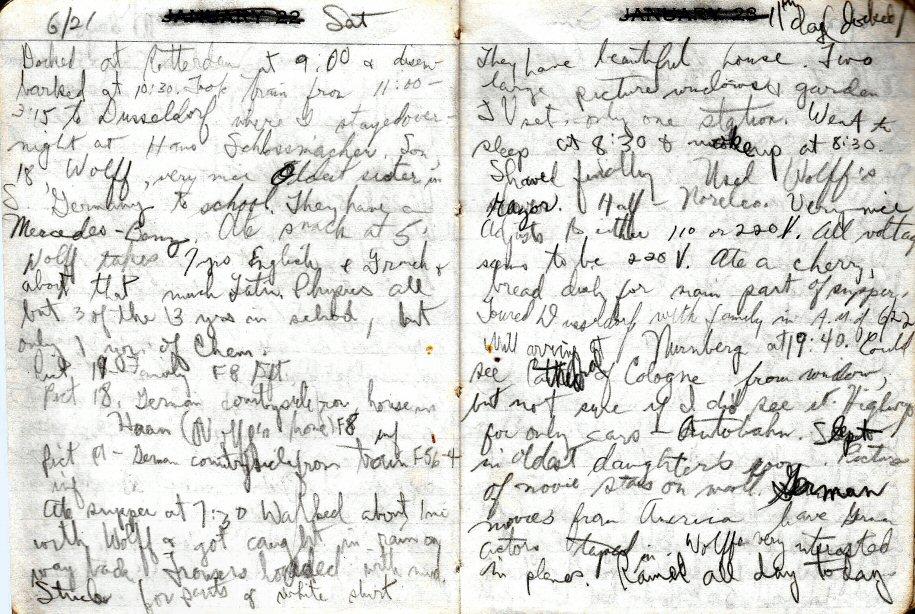 6/21 JANUARY 22 Sat
Docked at Rotterdam at 9:00 & disem-
barked at 10:30. Took train from 11:00-
3:15 to Dusseldorf were I stayed over-
night at Hans Schossmacher. Son,
18, Wolff, very nice Oldest sister in
S. Germany to school. They have a
Mercedes-Benz. Ate snack at 5.
Wolff takes 7 yrs English & French &
about that much Latin. Physics all
but 3 of the 13 yrs in school, but
only 1 yr. of Chem.
Family F8
Pict 18, German countryside from house in
Haan (Wolff's home) F8 inf
Pict 19 - German countryside from train F5.6
inf
Ate supper at 7:30 Walked about 1 mi
with Wolff & got caught in rain on
way back. Trowsers loaded with mud.
for parts of white shirt.
JANUARY 23 11th day docked
They have beautiful house. Two
large picture windows & garden
TV set - only one station. Went to
sleep at 8:30 & woke up at 8:30.
Shaved finally Used Wolff's
razor. Noreleo. Very nice
Adjusts to either 110 or 220 V. All voltage
seems to be 220 V. Ate a cherry,
bread dish for main part of supper.
Toured Dusseldorf with family in A.M. of 6/22
Will arrive at Nurnberg at 19:40. Could
see Cathedral of Cologne from window,
but not sure if I did see it. Highway
for only cars - Autobahn. Slept
in oldest daughter's room. Pictures
of movie stars on wall. German
movies from America have German
actors taped in. Wolff very interested
in planes. Rained all day today